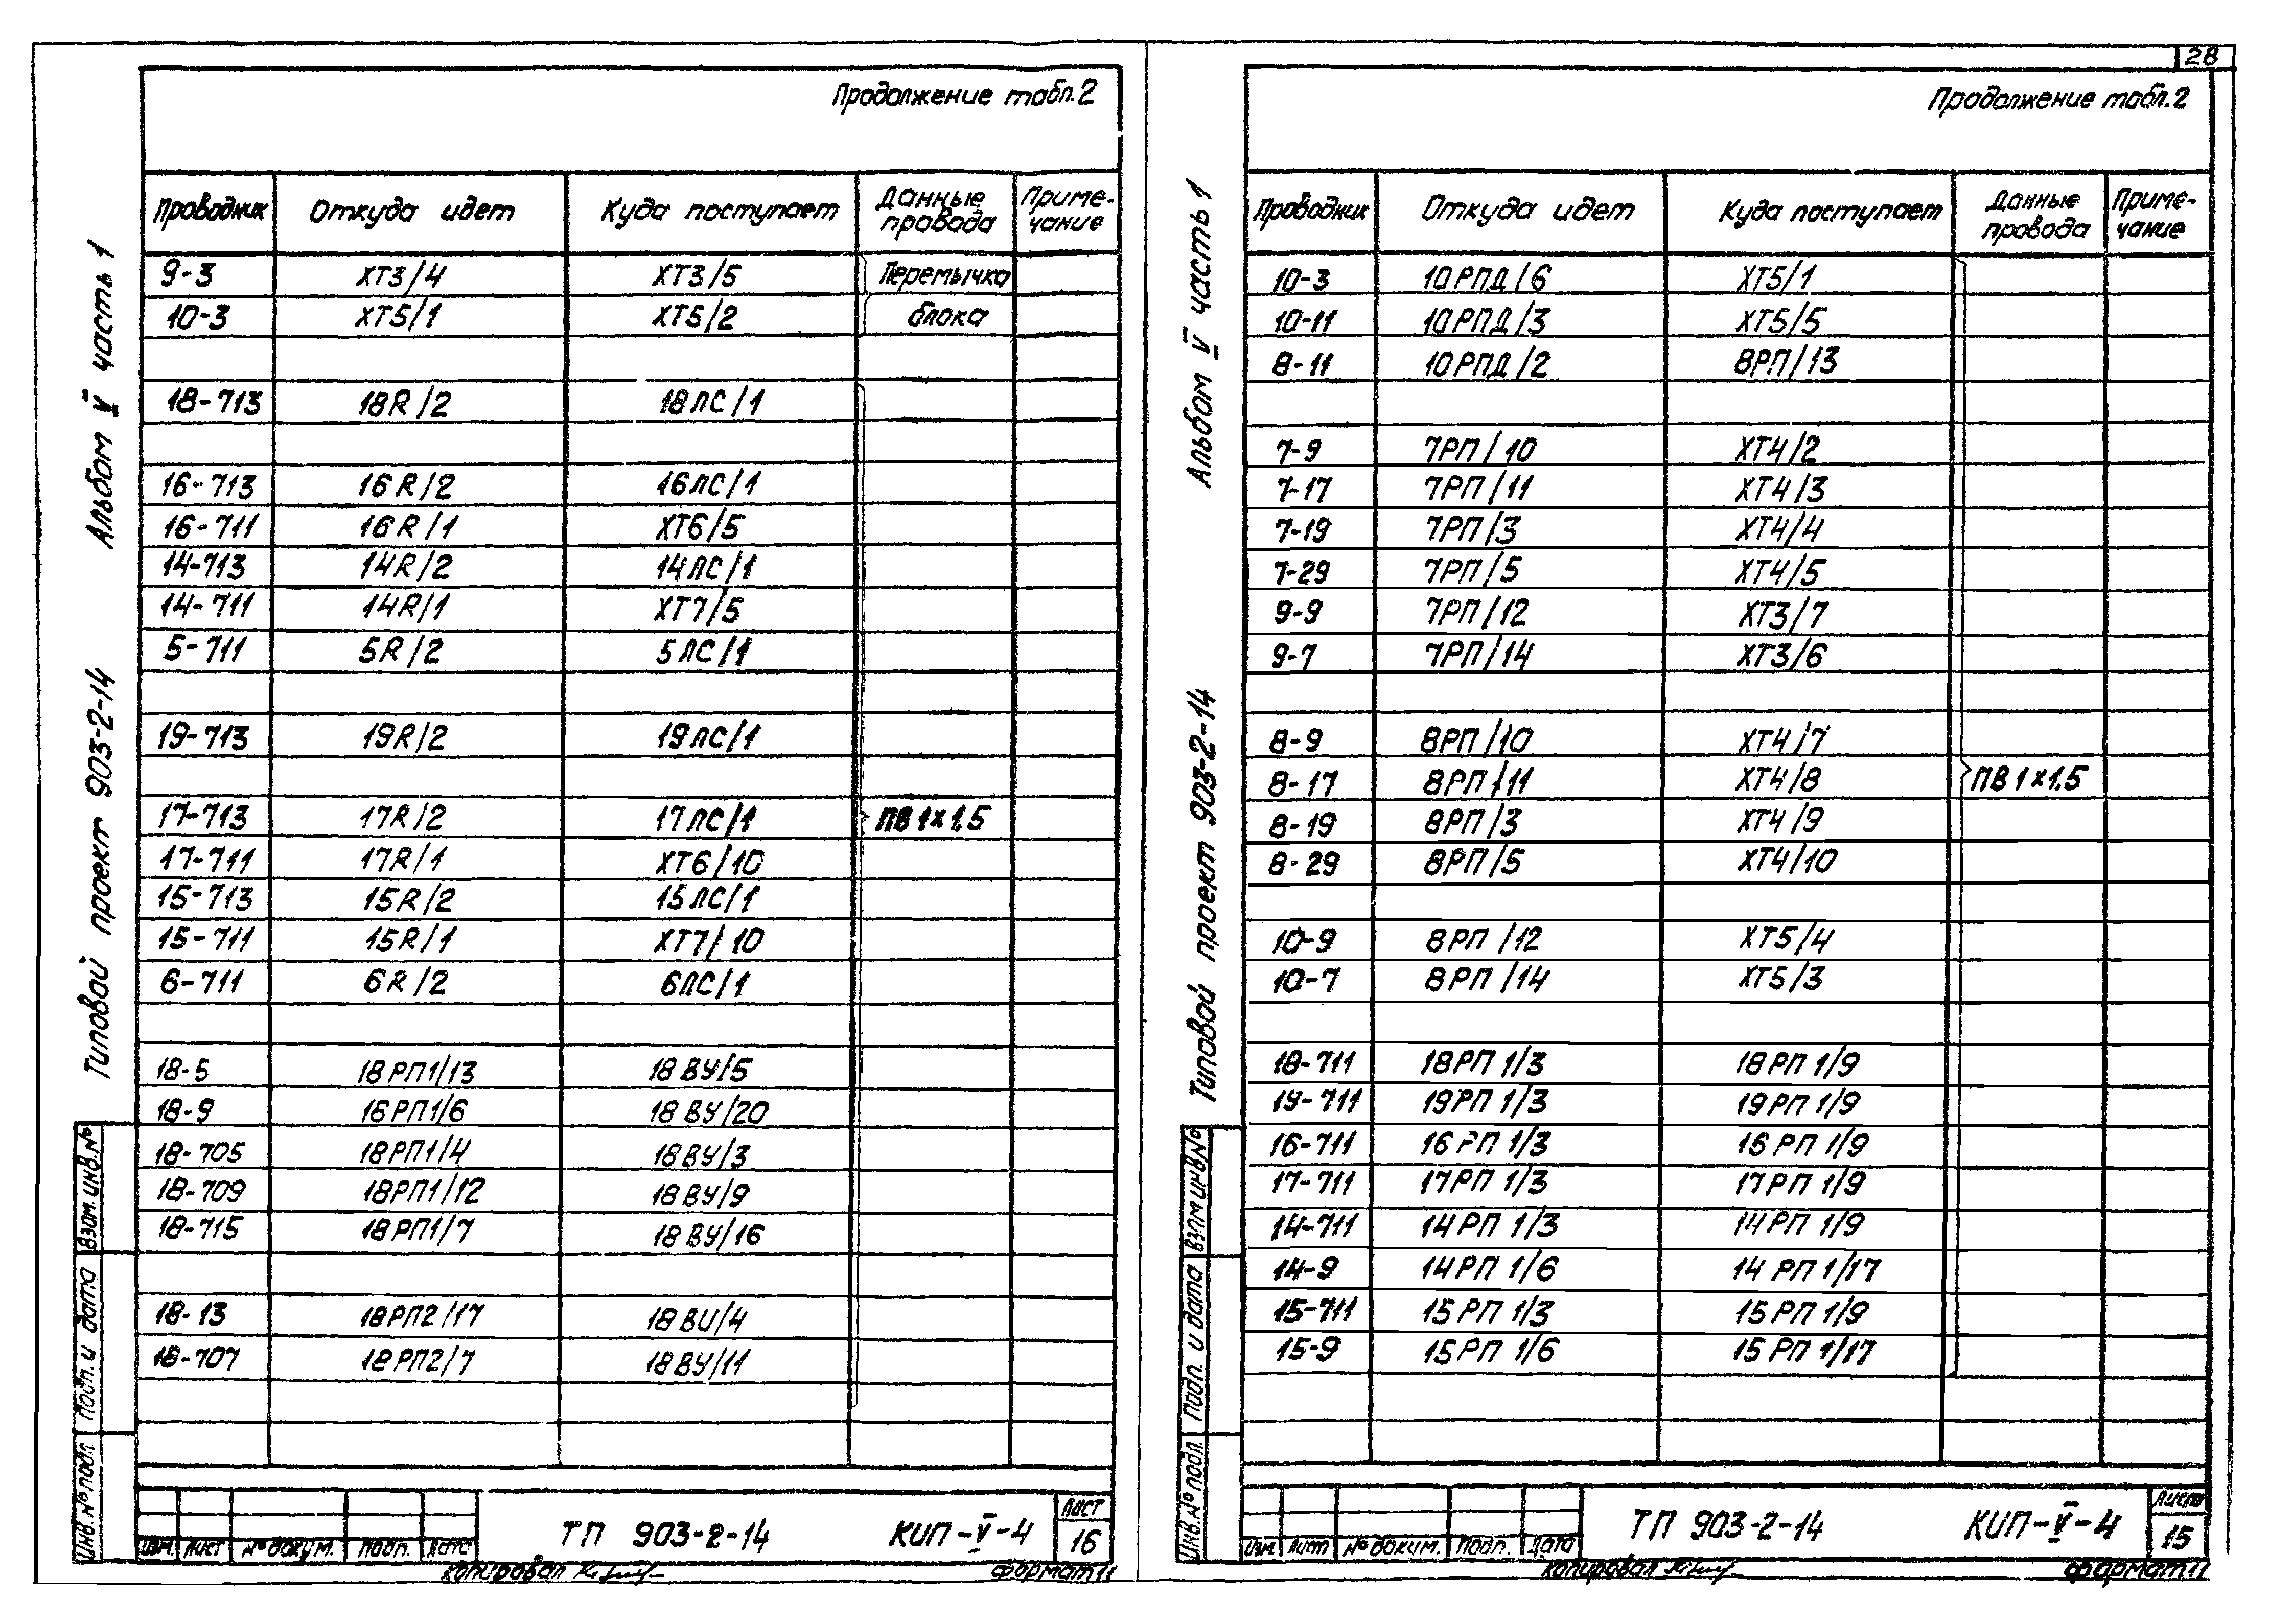 28
Продолжение табл.2
Проводник Откуда идет Куда поступает Данные провода Примечание
9-3 ХТ3/4 ХТ3/5 Перемычка
10-3 ХТ5/1 ХТ5/2 блока
18-713 18R/2 18ЛС/1
16-713 16R/2 16ЛС/1
16-711 16R/1 ХТ6/5
14-713 14R/2 14ЛС/1
14-711 14R/1 ХТ7/5
5-711 5R/2 5ЛС/1
19-713 19R/2 19ЛС/1
17-713 17R/2 17ЛС/1 ПВ 1х1,5
17-711 17R/1 ХТ6/10
15-713 15R/2 15ЛС/1
15-711 15R/1 ХТ7/10
6-711 6R/2 6ЛС/1
18-5 18РП1/13 18ВУ/5
18-9 18РП1/6 18ВУ/20
18-705 18РП1/4 18ВУ/3
18-709 18РП1/12 18ВУ/9
18-715 18РП1/7 18ВУ/16
18-13 18РП2/17 18ВU/4
18-707 18РП2/7 18ВУ/11
Альбом V часть 1
Типовой проект 903-2-14
Взам. инв. №
Подп. и дата
Инв. № подл
Изм. Лист № докум. Подп. Дата
ТП 903-2-14 КИП-V-4
Лист
16
Копировал
Формат 11
Продолжение табл.2
Проводник Откуда идет Куда поступает Данные провода Примечание
10-3 10РПД/6 ХТ5/1
10-11 10РПД/3 ХТ5/5
8-11 10РПД/2 8РП/13
7-9 7РП/10 ХТ4/2
7-17 7РП/11 ХТ4/3
7-19 7РП/3 ХТ4/4
7-29 7РП/5 ХТ4/5
9-9 7РП/12 ХТ3/7
9-7 7РП/14 ХТ3/6
8-9 8РП/10 ХТ4/7
8-17 8РП/11 ХТ4/8 ПВ 1х1,5
8-19 8РП/3 ХТ4/9
8-29 8РП/5 ХТ4/10
10-9 8РП/12 ХТ5/4
10-7 8РП/14 ХТ5/3
18-711 18РП 1/3 18РП 1/9
19-711 19РП 1/3 19РП 1/9
16-711 16РП 1/3 16РП 1/9
17-711 17РП 1/3 17РП 1/9
14-711 14РП 1/3 14РП 1/9
14-9 14РП 1/6 14РП 1/17
15-711 15РП 1/3 15РП 1/9
15-9 15РП 1/6 15РП 1/17
Альбом V часть 1
Типовой проект 903-2-14
Взам инв №
Подп. и дата
Инв. № подл.
Изм. Лист № докум. Подп. Дата
ТП 903-2-14 КИП-V-4
Лист
15
Копировал
Формат 11